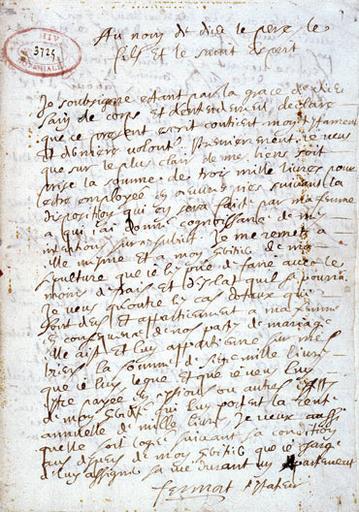 3725
Au nom de dieu le pere le
fils et le saint esprit
Je soubsigne estant par la grace de dieu
sain de corps et d'entendement, declare
que ce present escrit contient mon testament
et derniere volonté. Premierement je veux
que sur le plus clair de mes biens soit
prise la somme de trois mille livres pour
estre employée en œuvres pies suivant la
disposition qui en sera faite par ma femme
a qui j'ai donné connoissance de mes
intentions sur ce subiect. Je me remets a
elle mesme et a mon heritier de ma
sepulture que je les prie de faire avec le
moins de frais et d'esclat qu'il se pourra.
Je veux qu'outre les cas dotaux qui
sont deus et appartienent a ma femme
en consequence de nos pactes de mariage
elle ait et luy appartiene sur mes
biens la somme de sept mille livres
que je luy legue et que je veux luy
estre payée en cessions ou autres
de mon heritier qui luy portent la rente
annuelle de mille livres. Je veux aussi
quelle soit logée suivant sa condition
aux despens de mon heritier que je charge
de luy assigner sa vie durant un apartement
fermat testateur